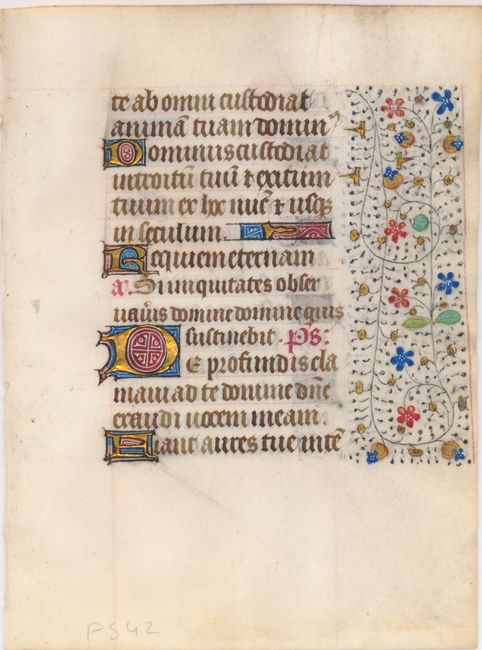 te ab omni custodiat
animā tuam domin⁹
Dominus custodiat
introitū tuū ⁊ exitum
tuum ex hoc nūc ⁊ usqȝ
in seculum.
Requiem eternam
a. Si iniquitates obser
uaūis domine domine quis
sustinebit. ps:
De profundis cla
maui ad te domine dn̄e
exaudi uocem meam.
Fiant aures tue intē
PS42